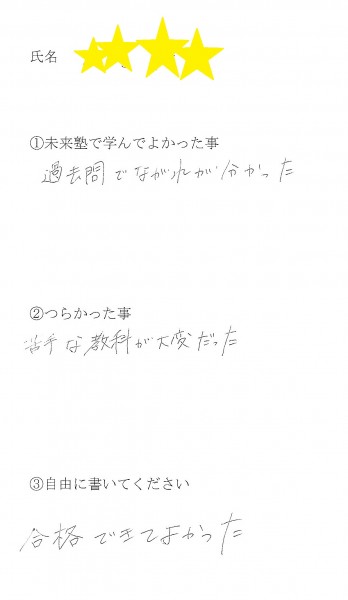 氏名
①未来塾で学んでよかった事
過去問でながれが分かった
②つらかった事
苦手な教科が大変だった
③自由に書いてください
合格できてよかった